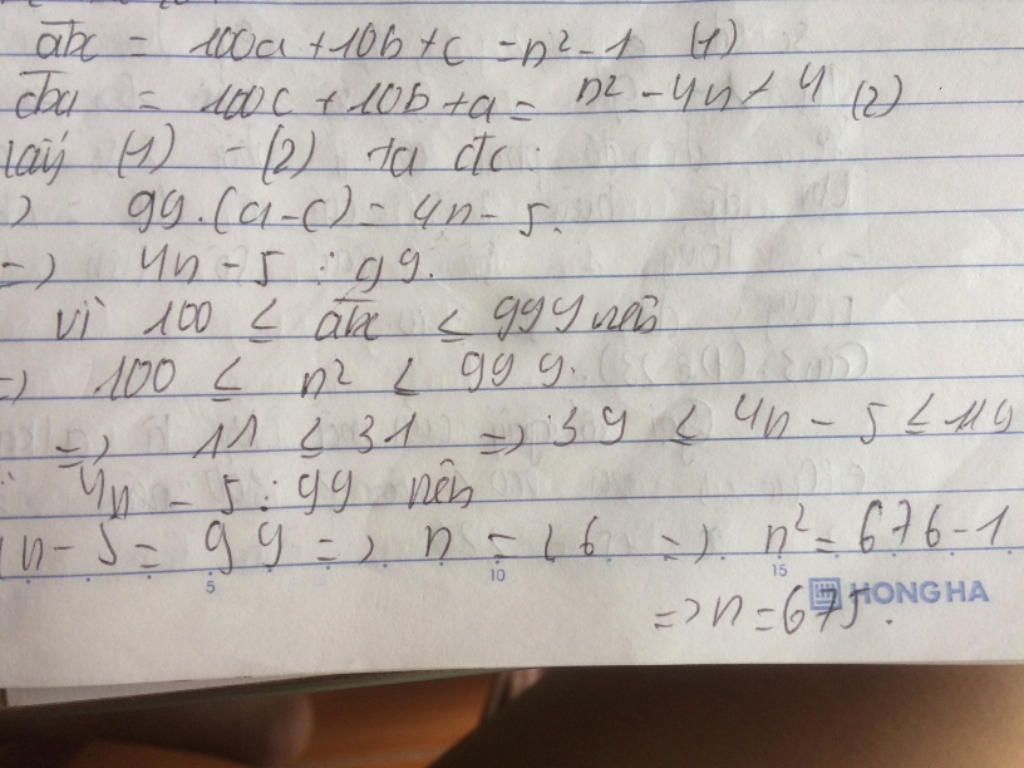 abc = 100a + 10b + c = n² - 1 (1)
cba = 100c + 10b + a = n² - 4n + 4 (2)
lấy (1) - (2) ta đc:
=> 99.(a-c) = 4n - 5.
=> 4n - 5 ⋮ 99.
vì 100 ≤ abc ≤ 999 nên
=> 100 ≤ n² ≤ 999.
=> 11 ≤ 31 => 39 ≤ 4n - 5 ≤ 119
4n - 5 ⋮ 99 nên
4n - 5 = 99 => n = 26 => n² = 676 - 1
5 10 15
HONG HA
=> n = 675.